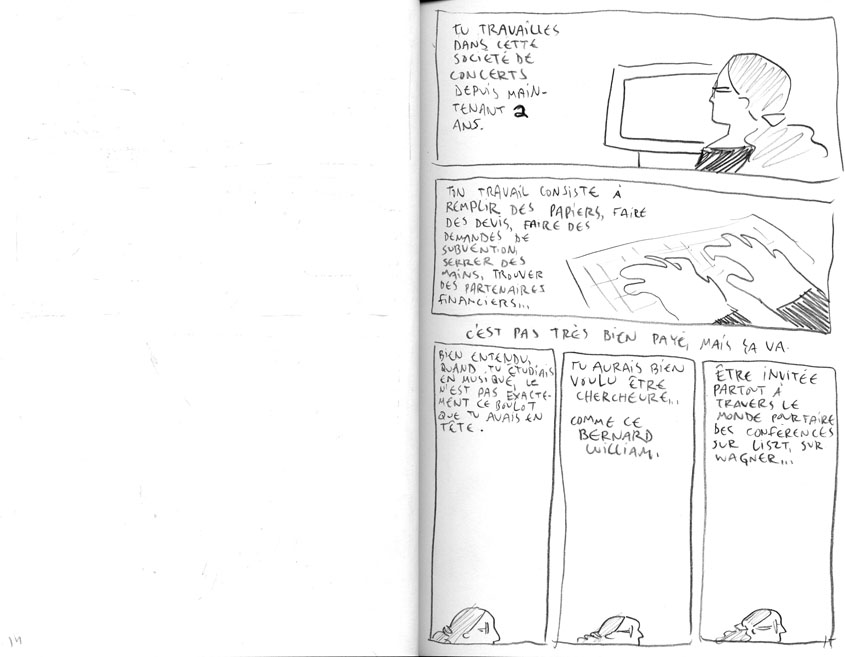 TU TRAVAILLES
DANS CETTE
SOCIÉTÉ DE
CONCERTS
DEPUIS MAIN-
TENANT 2
ANS.
TON TRAVAIL CONSISTE À
REMPLIR DES PAPIERS, FAIRE
DES DEVIS, FAIRE DES
DEMANDES DE
SUBVENTION,
SERRER DES
MAINS, TROUVER
DES PARTENAIRES
FINANCIERS...
C'EST PAS TRÈS BIEN PAYÉ, MAIS ÇA VA.
BIEN ENTENDU,
QUAND TU ÉTUDIAIS
EN MUSIQUE, CE
N'EST PAS EXACTE-
MENT CE BOULOT
QUE TU AVAIS EN
TÊTE.
TU AURAIS BIEN
VOULU ÊTRE
CHERCHEURE...
COMME CE
BERNARD
WILLIAM.
ÊTRE INVITÉE
PARTOUT À
TRAVERS LE
MONDE POUR FAIRE
DES CONFÉRENCES
SUR LISZT, SUR
WAGNER...
14
15